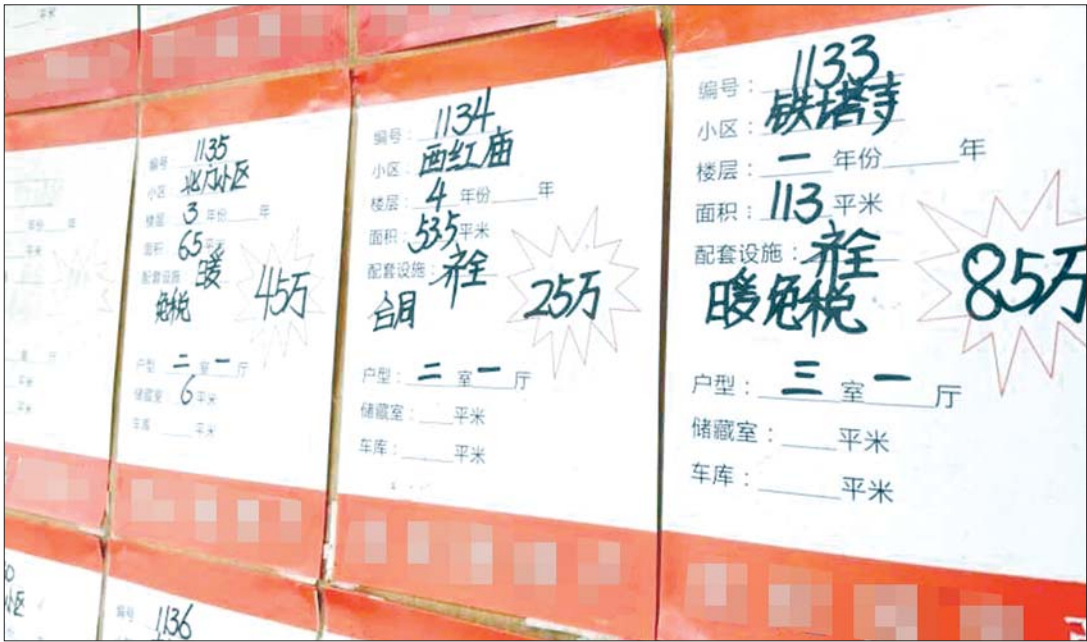 平米
编号：1135
小区：北门小区
楼层：3 年份 年
面积：65平米
配套设施：暖
免税
45万
户型：二室一厅
储藏室：6平米
车库：平米
编号：1134
小区：西红庙
楼层：4 年份 年
面积：53.5平米
配套设施：齐全
合同
25万
户型：二室一厅
储藏室：平米
车库：平米
编号：1133
小区：铁塔寺
楼层：一 年份 年
面积：113平米
配套设施：齐全
暖免税
85万
户型：三室一厅
储藏室：平米
车库：平米
年份 年
平米
厅
平米
平米
小区
编号：1136